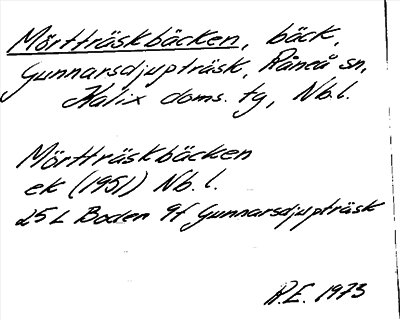 Mörtträskbäcken, bäck,
Gunnarsdjupträsk, Råneå sn,
Kalix doms. tg, Nb.l.
Mörtträskbäcken
ek (1951) Nb. l.
25 L Boden 9f Gunnarsdjupträsk
R.E. 1973